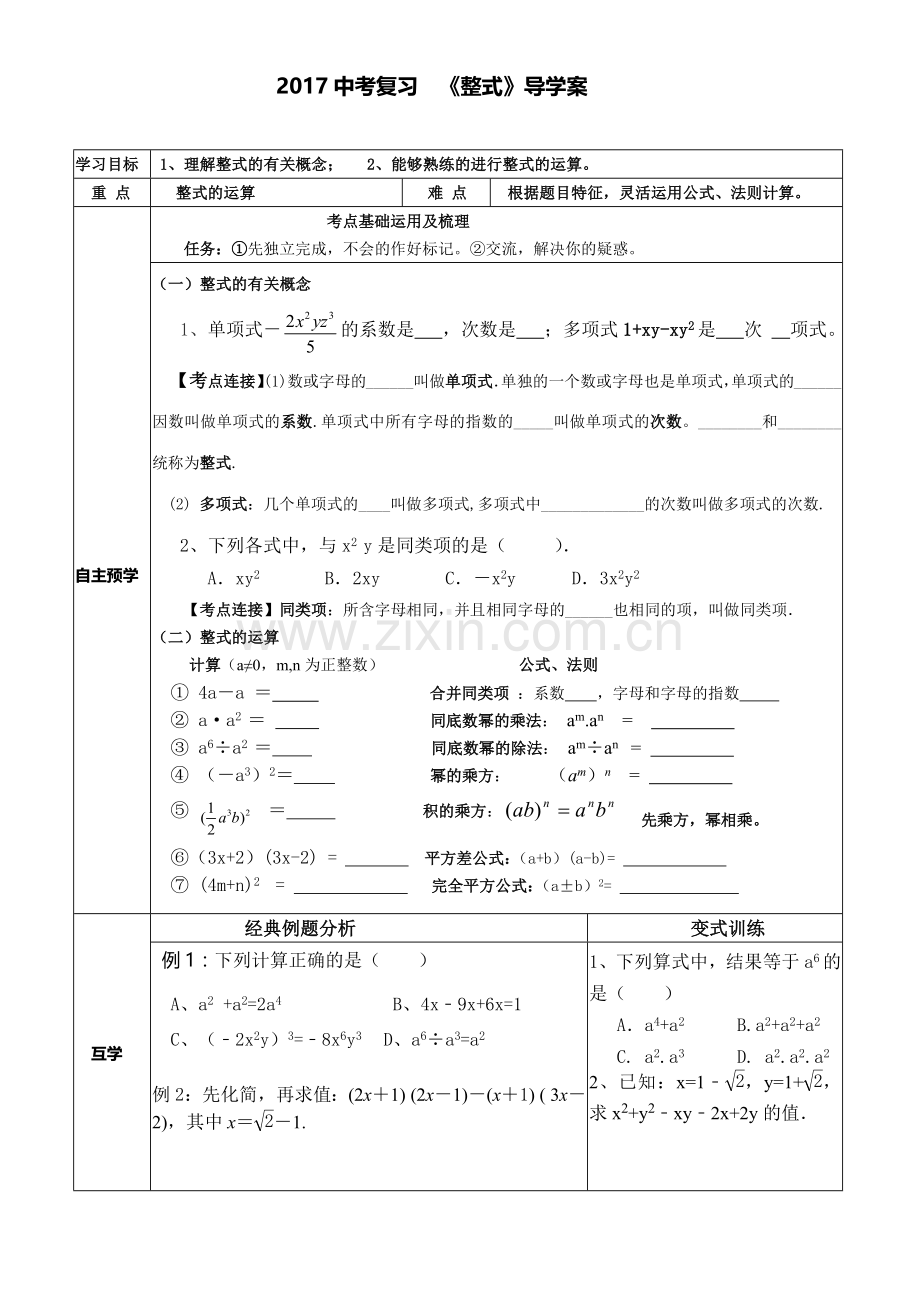 2017中考复习 《整式》导学案
学习目标 1、理解整式的有关概念； 2、能够熟练的进行整式的运算。
重 点 整式的运算 难 点 根据题目特征，灵活运用公式、法则计算。
考点基础运用及梳理
任务：①先独立完成，不会的作好标记。②交流，解决你的疑惑。
自主预学
（一）整式的有关概念
1、单项式－2x²yz³/5 的系数是___，次数是___；多项式1+xy-xy²是___次 __项式。
【考点连接】(1)数或字母的______叫做单项式.单独的一个数或字母也是单项式,单项式的______
因数叫做单项式的系数.单项式中所有字母的指数的_____叫做单项式的次数。________和________
统称为整式.
(2) 多项式：几个单项式的____叫做多项式,多项式中_____________的次数叫做多项式的次数.
2、下列各式中，与x² y是同类项的是（ ）．
A．xy² B．2xy C．－x²y D．3x²y²
【考点连接】同类项：所含字母相同，并且相同字母的______也相同的项，叫做同类项．
（二）整式的运算
计算（a≠0，m,n为正整数） 公式、法则
① 4a－a ＝_____ 合并同类项 ：系数____，字母和字母的指数_____
② a·a² ＝ _____ 同底数幂的乘法： aᵐ.aⁿ = _________
③ a⁶÷a² ＝____ 同底数幂的除法： aᵐ÷aⁿ = _________
④ （－a³）²＝____ 幂的乘方： （aᵐ）ⁿ = _________
⑤ (1/2 a³b)² ＝_____ 积的乘方：(ab)ⁿ = aⁿbⁿ 先乘方，幂相乘。
⑥（3x+2）(3x-2) = _______ 平方差公式：（a+b）(a-b)= ___________
⑦ (4m+n)² = ____________ 完全平方公式：（a±b）²= ____________
互学
经典例题分析 变式训练
例1：下列计算正确的是（ ）
A、a² +a²=2a⁴ B、4x﹣9x+6x=1
C、（﹣2x²y）³=﹣8x⁶y³ D、a⁶÷a³=a²
例2：先化简，再求值：(2x＋1) (2x－1)－(x＋1) ( 3x－
2)，其中x＝√2－1.
1、下列算式中，结果等于a⁶的
是（ ）
A．a⁴+a² B.a²+a²+a²
C. a².a³ D. a².a².a²
2、已知：x=1﹣√2，y=1+√2，
求x²+y²﹣xy﹣2x+2y的值．
www.zixin.com.cn